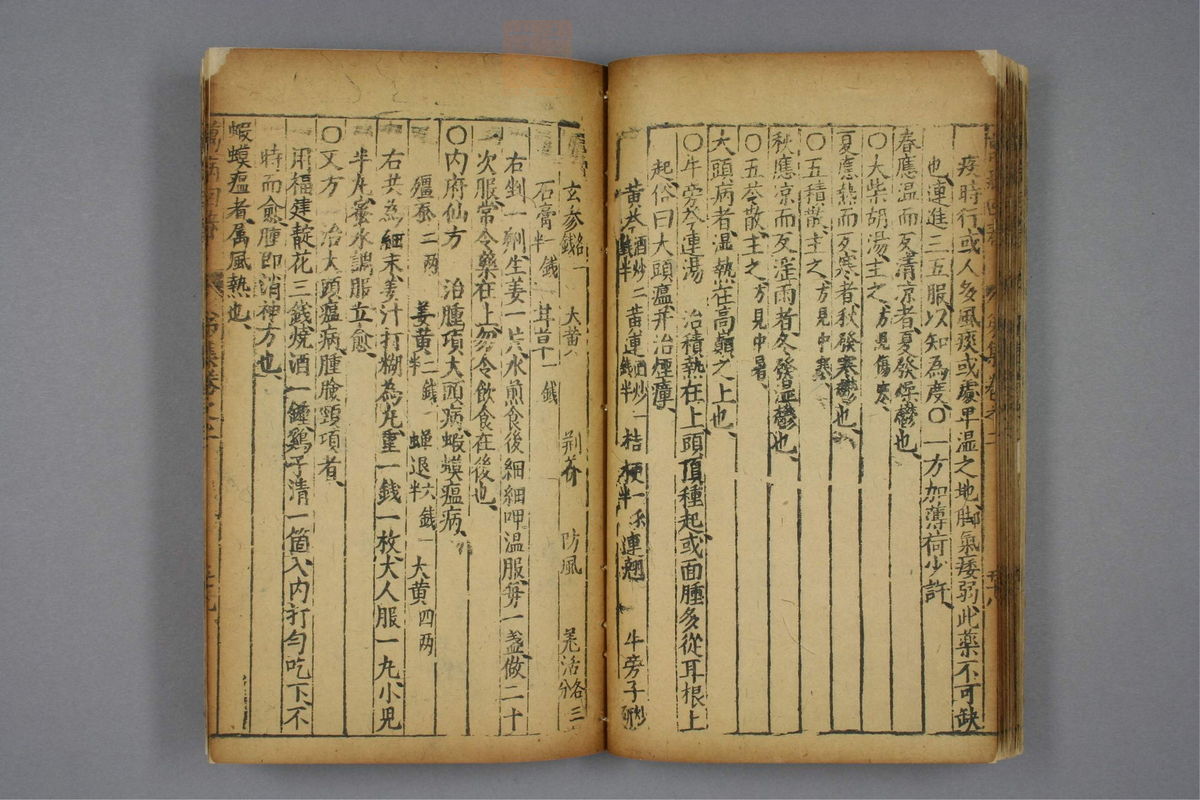 疫時行或人多風痰或處卑湿之地脚氣痿弱此藥不可缺
也連進三五服以知為度〇一方加薄荷少許
春應温而反清凉者夏發燥鬱也
〇大柴胡湯主之方見傷寒
夏應熱而反寒者秋發寒鬱也
〇五積散主之方見中寒
秋應凉而反淫雨者冬發湿鬱也
〇五苓散主之方見中暑
大頭病者湿熱在高巔之上也
〇牛旁芩連湯 治積熱在上頭頂種起或面腫多從耳根上
起俗曰大頭瘟并治煙瘴
黄芩酒炒二錢半 黄連酒炒一錢半 桔梗一錢半 連翹 牛旁子炒研
玄參各一錢 大黄 荆芥 防風 羗活各三分
石膏一錢半 甘草一錢
右剉一劑生姜一片水煎食後細細呷温服毎一盞做二十
次服常令藥在上勿令飲食在後也
〇内府仙方 治腫項大頭病蝦蟆瘟病
殭蚕二两 姜黄二錢半 蟬退六錢半 大黄四两
右共為細末姜汁打糊為丸重一錢一枚大人服一丸小児
半丸蜜水調服立愈
〇又方 治大頭瘟病腫臉頸項者
用福建靛花三錢焼酒一鍾鷄子清一箇入内打勻吃下不
時而愈腫即消神方也
蝦蟆瘟者属風熱也